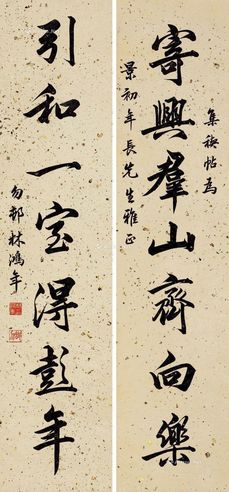 集禊帖為
寄興羣山齊向樂
景初年長先生雅正
引和一室得彭年
勿邨林鴻年